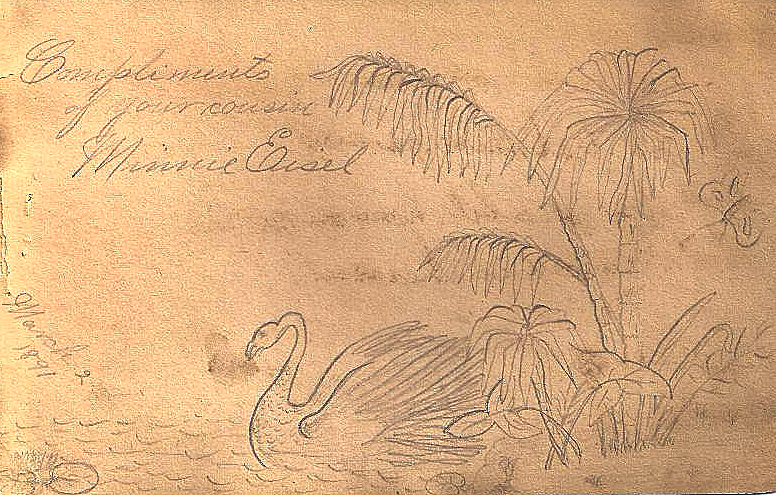 Compliments
of your cousin
Minnie Eusel
March 2
1891